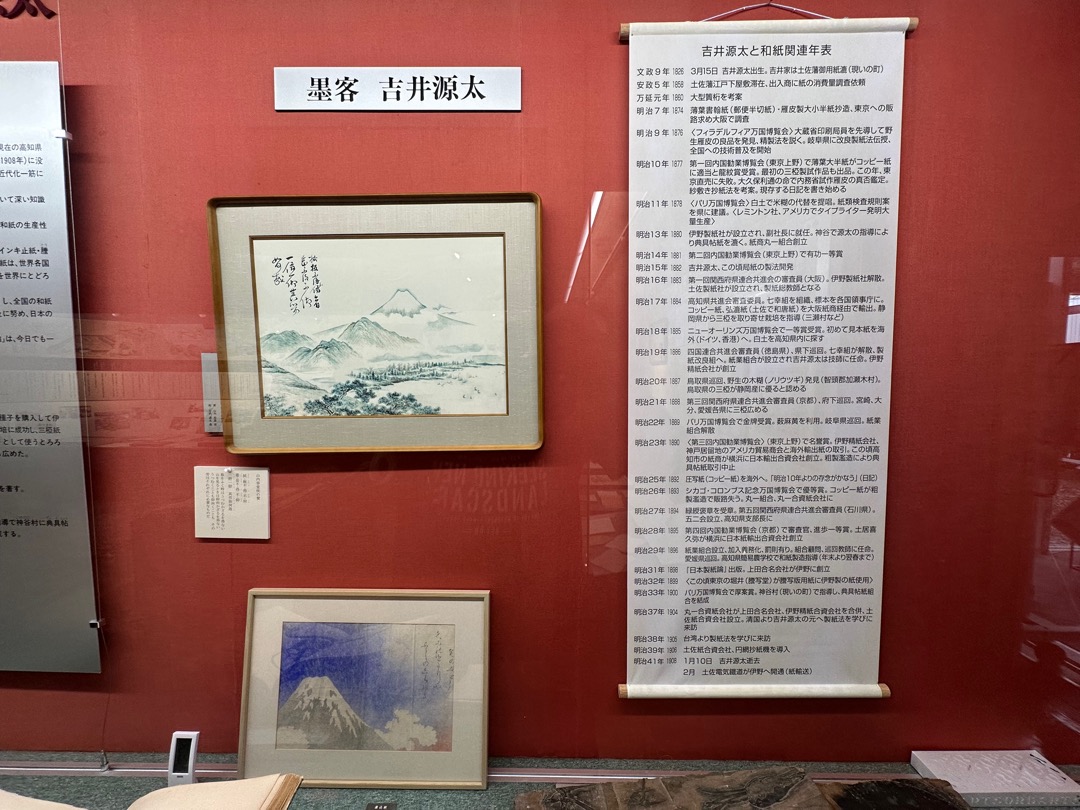 太
墨客 吉井源太
現在の高知県
1908年)に没
近代化一筋に
いて深い知識
和紙の生産性
インキ止紙・種
紙は、世界各国
を世界にとどろ
し、全国の和紙
に努め、日本の
」は、今日でも一
様子を購入して伊
培に成功し、三椏紙
として使うとろろ
広めた。
を著す。
導で神谷村に典具帖
する。
吉井源太と和紙関連年表
文政9年 1826 3月15日 吉井源太出生。吉井家は土佐藩御用紙漉(現いの町)
安政5年 1858 土佐藩江戸下屋敷滞在、出入商に紙の消費量調査依頼
万延元年 1860 大型簀桁を考案
明治7年 1874 薄葉書翰紙(郵便半切紙)・雁皮製大小半紙抄造、東京への販
路求め大阪で調査
明治9年 1876 〈フィラデルフィア万国博覧会〉大蔵省印刷局員を先導して野
生雁皮の良品を発見、精製法を説く。岐阜県に改良製紙法伝授、
全国への技術普及を開始
明治10年 1877 第一回内国勧業博覧会(東京上野)で薄葉大半紙がコッピー紙
に適当と龍紋賞受賞。最初の三椏製試作品も出品。この年、東
京直売に失敗。大久保利通の命で内務省試作雁皮の真否鑑定。
紗敷き抄紙法を考案。現存する日記を書き始める
明治11年 1878 〈パリ万国博覧会〉白土で米糊の代替を提唱。紙類検査規則案
を県に建議。〈レミントン社、アメリカでタイプライター発明大
量生産〉
明治13年 1880 伊野製紙社が設立され、副社長に就任。神谷で源太の指導によ
り典具帖紙を漉く。紙商丸一組合創立
明治14年 1881 第二回内国勧業博覧会(東京上野)で有功一等賞
明治15年 1882 吉井源太、この頃局紙の製法開発
明治16年 1883 第一回関西府県連合共進会の審査員(大阪)。伊野製紙社解散。
土佐製紙社が設立され、製紙総教師となる
明治17年 1884 高知県共進会審査委員。七幸組を組織、標本を各国領事庁に。
コッピー紙、弘進紙(土佐で和唐紙)を大阪紙商経由で輸出。静
岡県から三椏を取り寄せ栽培を指導(三瀬村など)
明治18年 1885 ニューオーリンズ万国博覧会で一等賞受賞。初めて見本紙を海
外(ドイツ、香港)へ。白土を高知県内に探す
明治19年 1886 四国連合共進会審査員(徳島県)、県下巡回。七幸組が解散、製
紙改良組へ。紙業組合が設立され吉井源太は技師に任命。伊野
精紙会社が創立
明治20年 1887 鳥取県巡回、野生の木糊(ノリウツギ)発見(智頭郡加瀬木村)。
鳥取県の三椏が静岡産に優ると認める
明治21年 1888 第三回関西府県連合共進会審査員(京都)、府下巡回。宮崎、大
分、愛媛各県に三椏広める
明治22年 1889 パリ万国博覧会で金牌受賞。薮麻黄を利用。岐阜県巡回。紙業
組合解散
明治23年 1890 〈第三回内国勧業博覧会〉(東京上野)で名誉賞。伊野精紙会社、
神戸居留地のアメリカ貿易商会と海外輸出紙の取引。この頃高
知市の紙商が横浜に日本輸出合資会社創立。粗製濫造により典
具帖紙取引中止
明治25年 1892 圧写紙(コッピー紙)を海外へ。「明治10年よりの存念がかなう」(日記)
明治26年 1893 シカゴ・コロンブス記念万国博覧会で優等賞。コッピー紙が粗
製濫造で販路失う。丸一組合、丸一合資紙会社に
明治27年 1894 緑綬褒章を受章。第五回関西府県連合共進会審査員(石川県)。
五二会設立、高知県支部長に
明治28年 1895 第四回内国勧業博覧会(京都)で審査官、進歩一等賞。土居喜
久弥が横浜に日本紙輸出合資会社創立
明治29年 1896 紙業組合設立、加入義務化、罰則有り。組合顧問、巡回教師に任命。
愛媛県巡回。高知県簡易農学校で和紙製造指導(年末より翌春まで)
明治31年 1898 「日本製紙論」出版。上田合名会社が伊野に創立
明治32年 1899 〈この頃東京の堀井(謄写堂)が謄写版用紙に伊野の紙使用〉
明治33年 1900 パリ万国博覧会で厚案賞。神谷村(現いの町)で指導し、典具帖紙組
合を結成
明治37年 1904 丸一合資紙会社が上田合名会社、伊野精紙合資会社を合併、土
佐紙合資会社設立。清国より吉井源太の元へ製紙法を学びに
来訪
明治38年 1905 台湾より製紙法を学びに来訪
明治39年 1906 土佐紙合資会社、円網抄紙機を導入
明治41年 1908 1月10日 吉井源太逝去
2月 土佐電気鐵道が伊野へ開通(紙輸送)